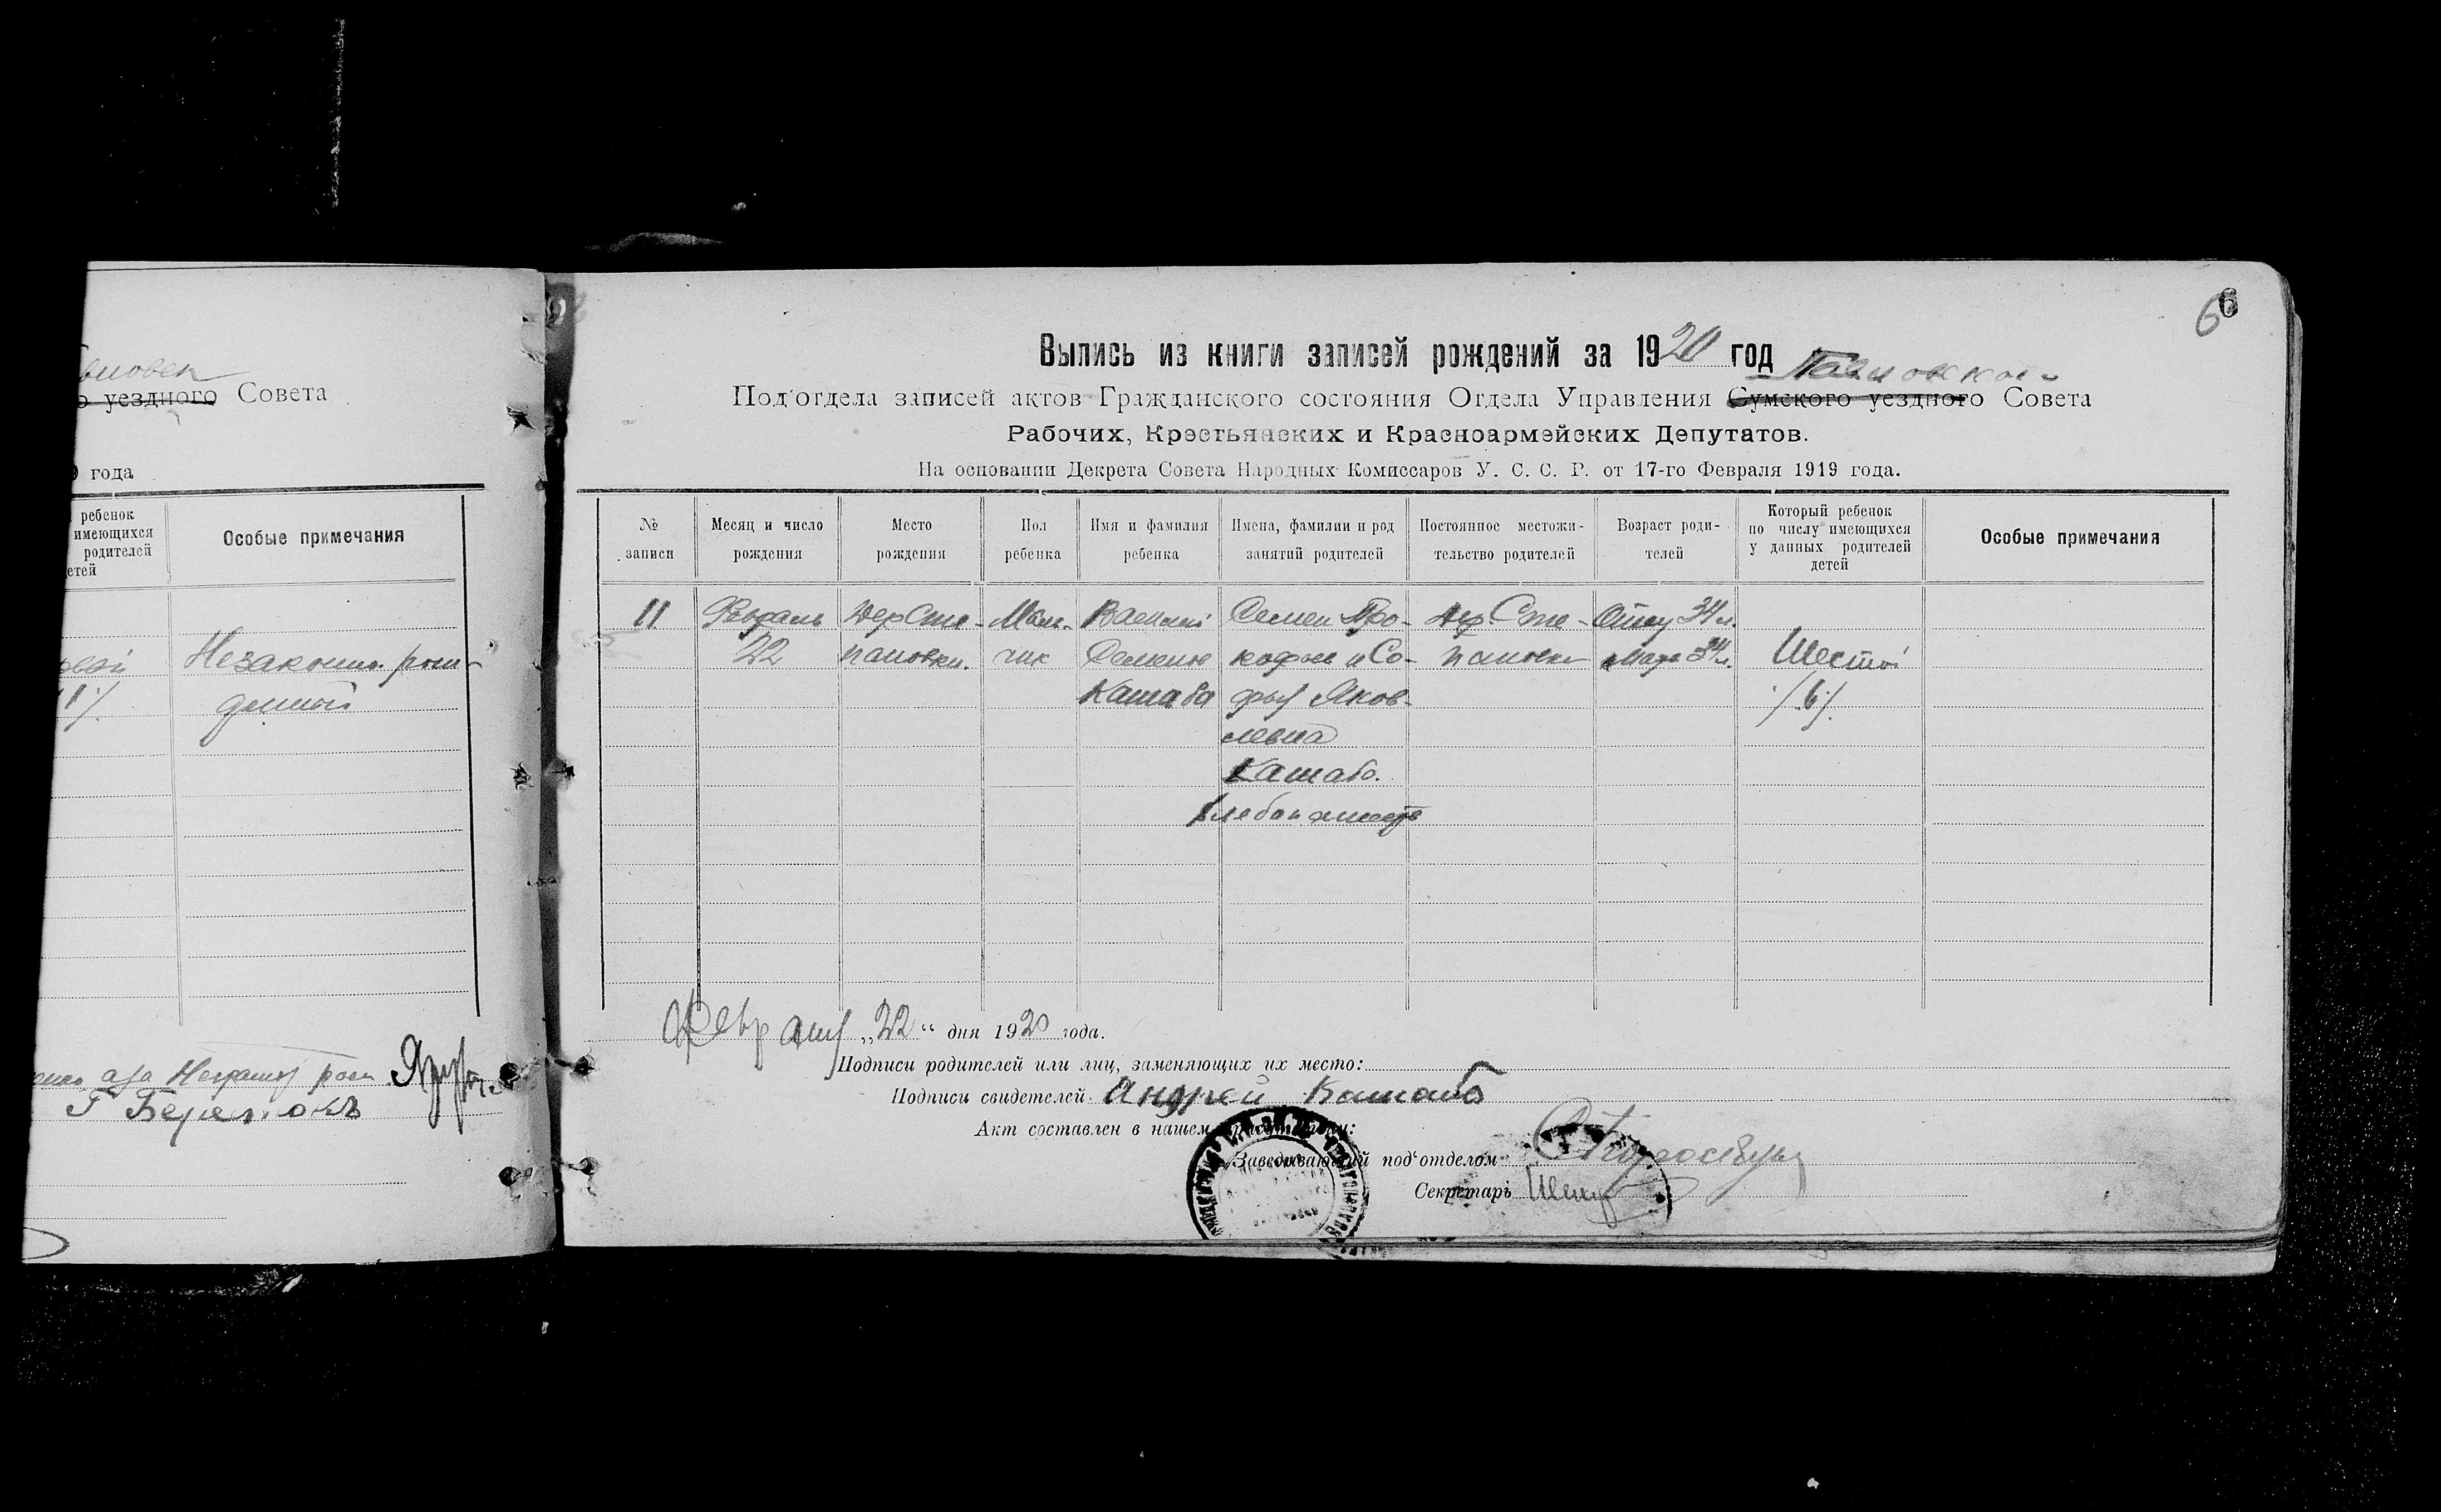 уездного Совета
года
ребенок
имеющихся
родителей
Особые примечания
Незаконно рож-
денный
1/.
Г Берелюкъ
6
6
Выпись из книги записей рождений за 1920 год
Под'отдела записей актов Гражданского состояния Отдела Управления Сумского уездного Совета
Рабочих, Крестьянских и Красноармейских Депутатов.
На основании Декрета Совета Народных Комиссаров У. С. С. Р. от 17-го Февраля 1919 года.
№
записи
Месяц и число
рождения
Место
рождения
Пол
ребенка
Имя и фамилия
ребенка
Имена, фамилии и род
занятий родителей
Постоянное местожи-
тельство родителей
Возраст роди-
телей
Который ребенок
по числу имеющихся
у данных родителей
детей
Особые примечания
11
22
Дер Сте-
пановки.
Маль-
чик
Василий
Семенов
Кашаба
Семен Про-
кофьев и Со-
фья Яков-
левна
Кашаба.
Дер. Сте-
пановка
Отцу 34 л.
34 л.
Шестой
/6/.
Февраля „22“ дня 1920 года.
Подписи родителей или лиц, заменяющих их место:
Подписи свидетелей Андрей Кашаба
Акт составлен в нашем присутствии:
Заведывающий под'отделом
Секретарь